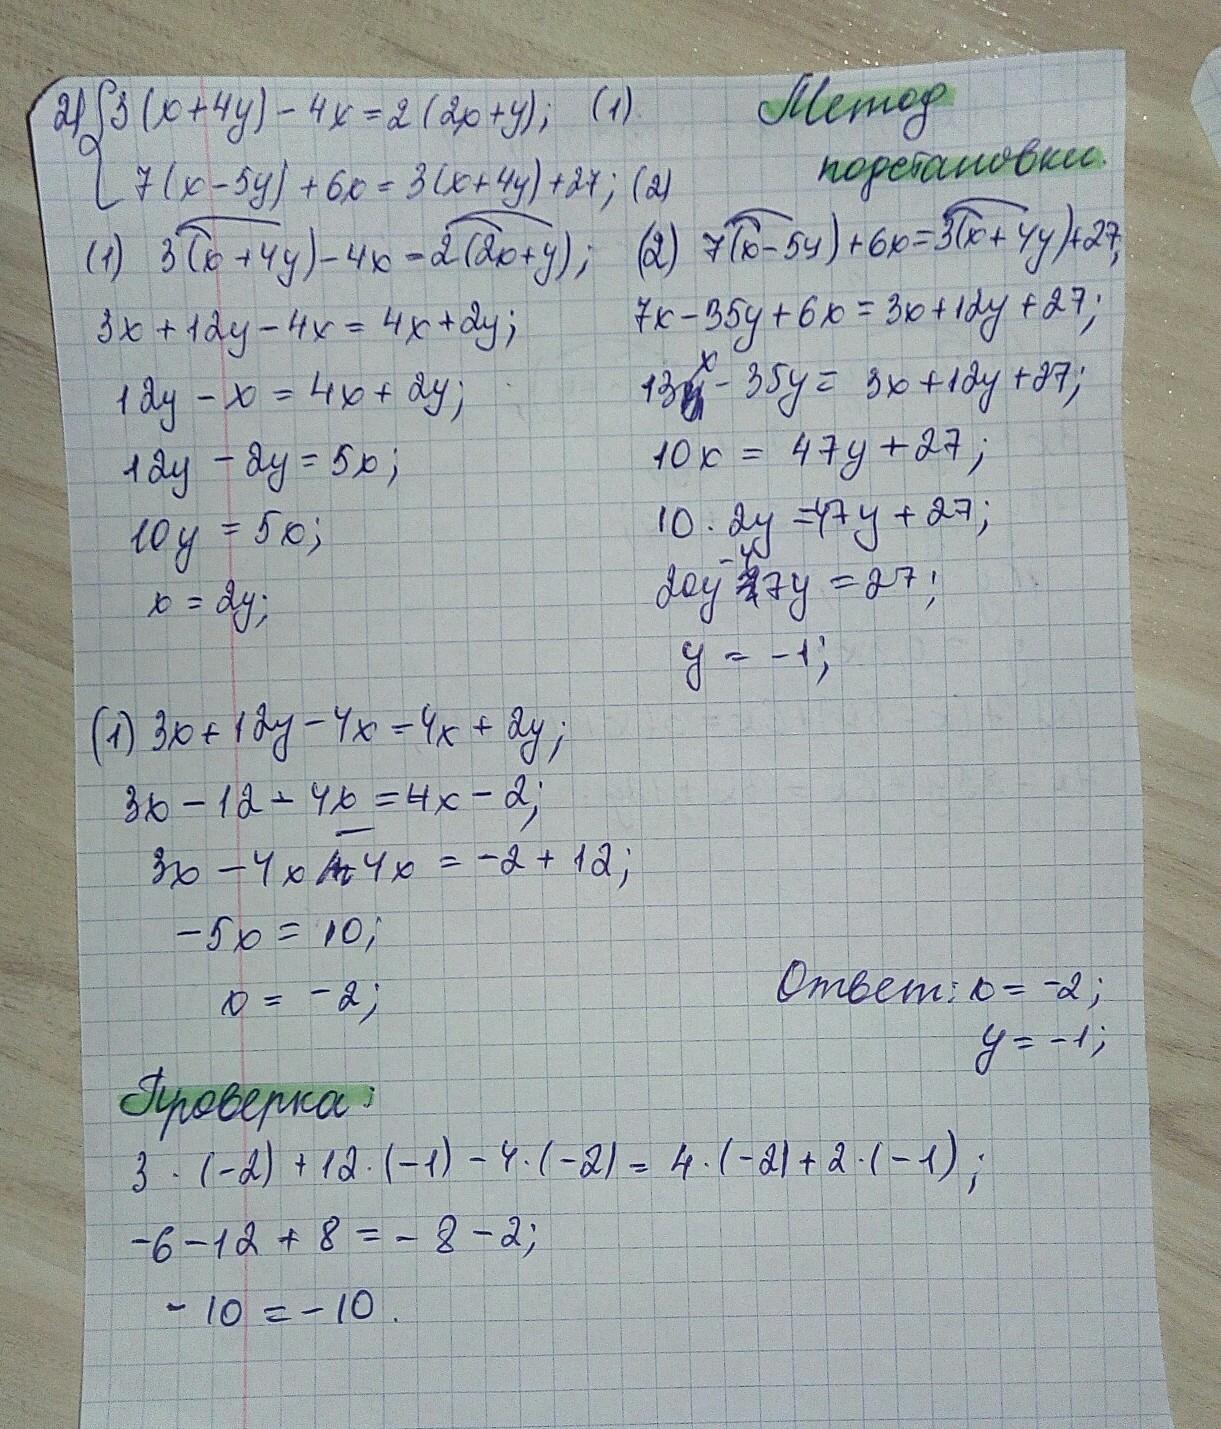 2) { 3(x+4y)-4x=2(2x+y); (1) Метод
7(x-5y)+6x=3(x+4y)+27; (2) подстановки.
(1) 3(x+4y)-4x=2(2x+y);
3x+12y-4x=4x+2y;
12y-x=4x+2y;
12y-2y=5x;
10y=5x;
x=2y;
(2) 7(x-5y)+6x=3(x+4y)+27;
7x-35y+6x=3x+12y+27;
13x-35y=3x+12y+27;
10x=47y+27;
10·2y=47y+27;
20y-47y=27;
y=-1;
(1) 3x+12y-4x=4x+2y;
3x-12-4x=4x-2;
3x-4x-4x=-2+12;
-5x=10;
x=-2;
Ответ: x=-2;
y=-1;
Проверка:
3·(-2)+12·(-1)-4·(-2)=4·(-2)+2·(-1);
-6-12+8=-8-2;
-10=-10.